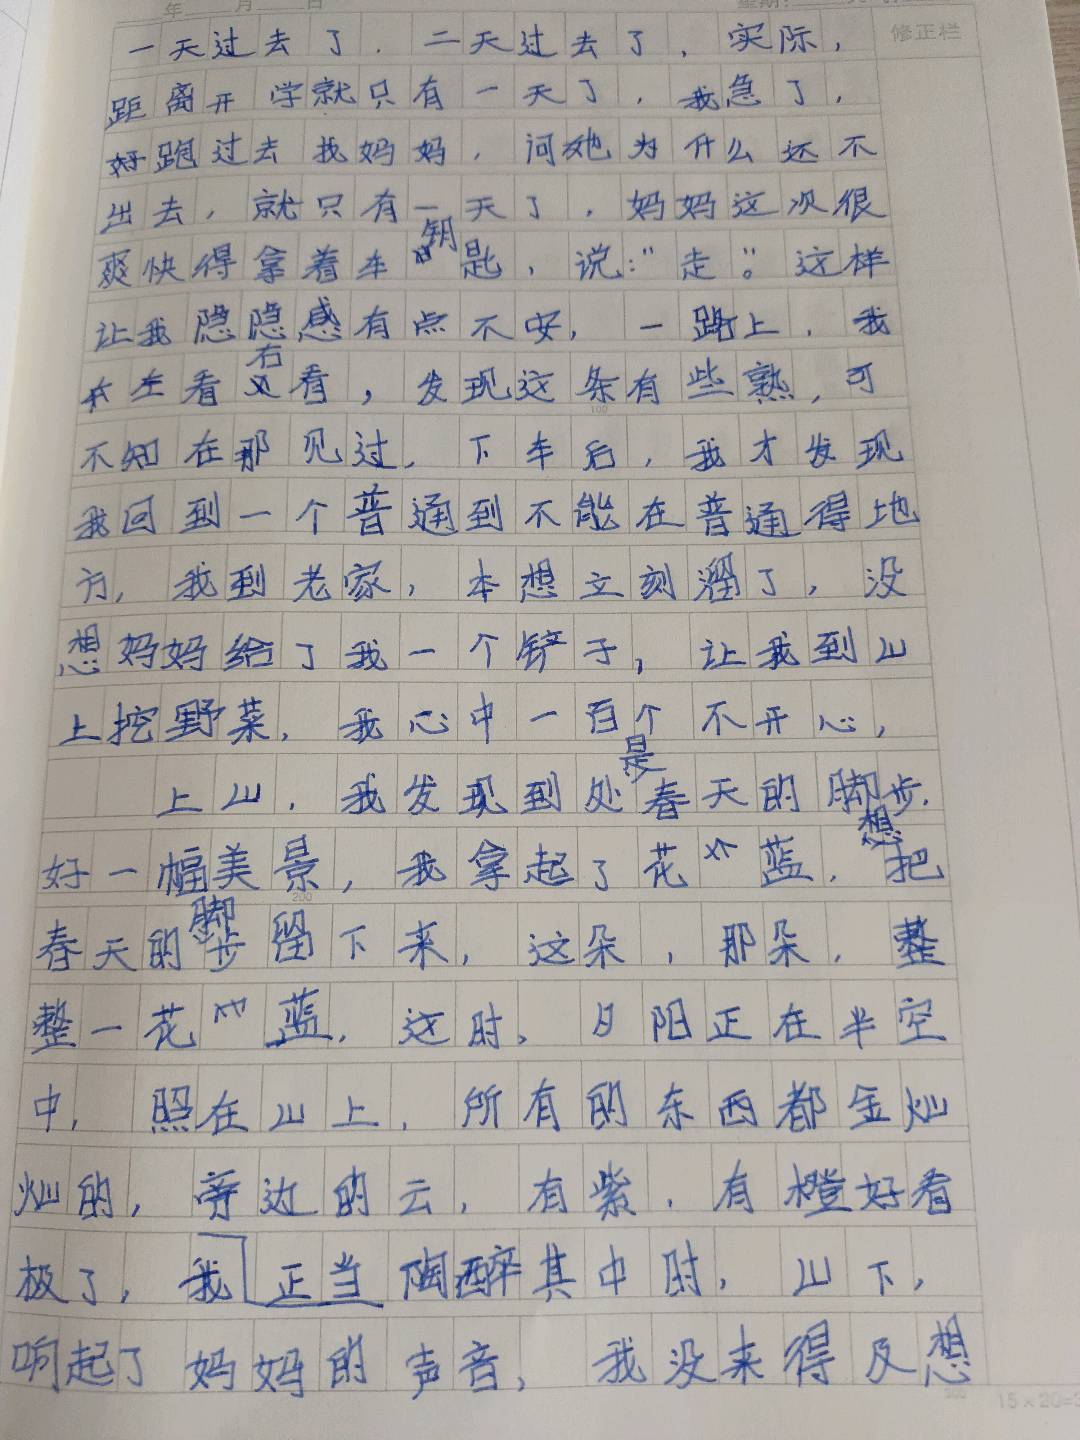 年 月 日 星期:
一天过去了．二天过去了，实际，
修正栏
距离开学就只有一天了，我急了，
好跑过去找妈妈，问她为什么还不
出去，就只有一天了，妈妈这次很
爽快得拿着车钥匙，说：“走”。这样
让我隐隐感有点不安，一路上，我
左看右看，发现这条有些熟，可
100
不知在那见过，下车后，我才发现
我回到一个普通到不能在普通得地
方，我到老家，本想立刻溜了，没
想妈妈给了我一个铲子，让我到山
上挖野菜，我心中一百个不开心，
上山，我发现到处是春天的脚步，
好一幅美景，我拿起了花蓝，想把
200
春天的脚步留下来，这朵，那朵，整
整一花蓝，这时，日阳正在半空
中，照在山上，所有的东西都金灿
灿的，旁边的云，有紫，有橙好看
极了，我正当陶醉其中时，山下，
响起了妈妈的声音，我没来得及想
300
15×20=3